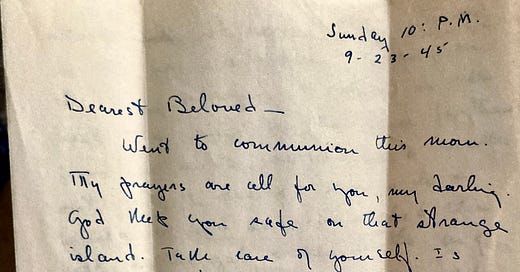 Sunday 10: P.M.
9-23-45
Dearest Beloved —
Went to communion this morn.
My prayers are all for you, my darling.
God keep you safe on that strange
island. Take care of yourself. Is